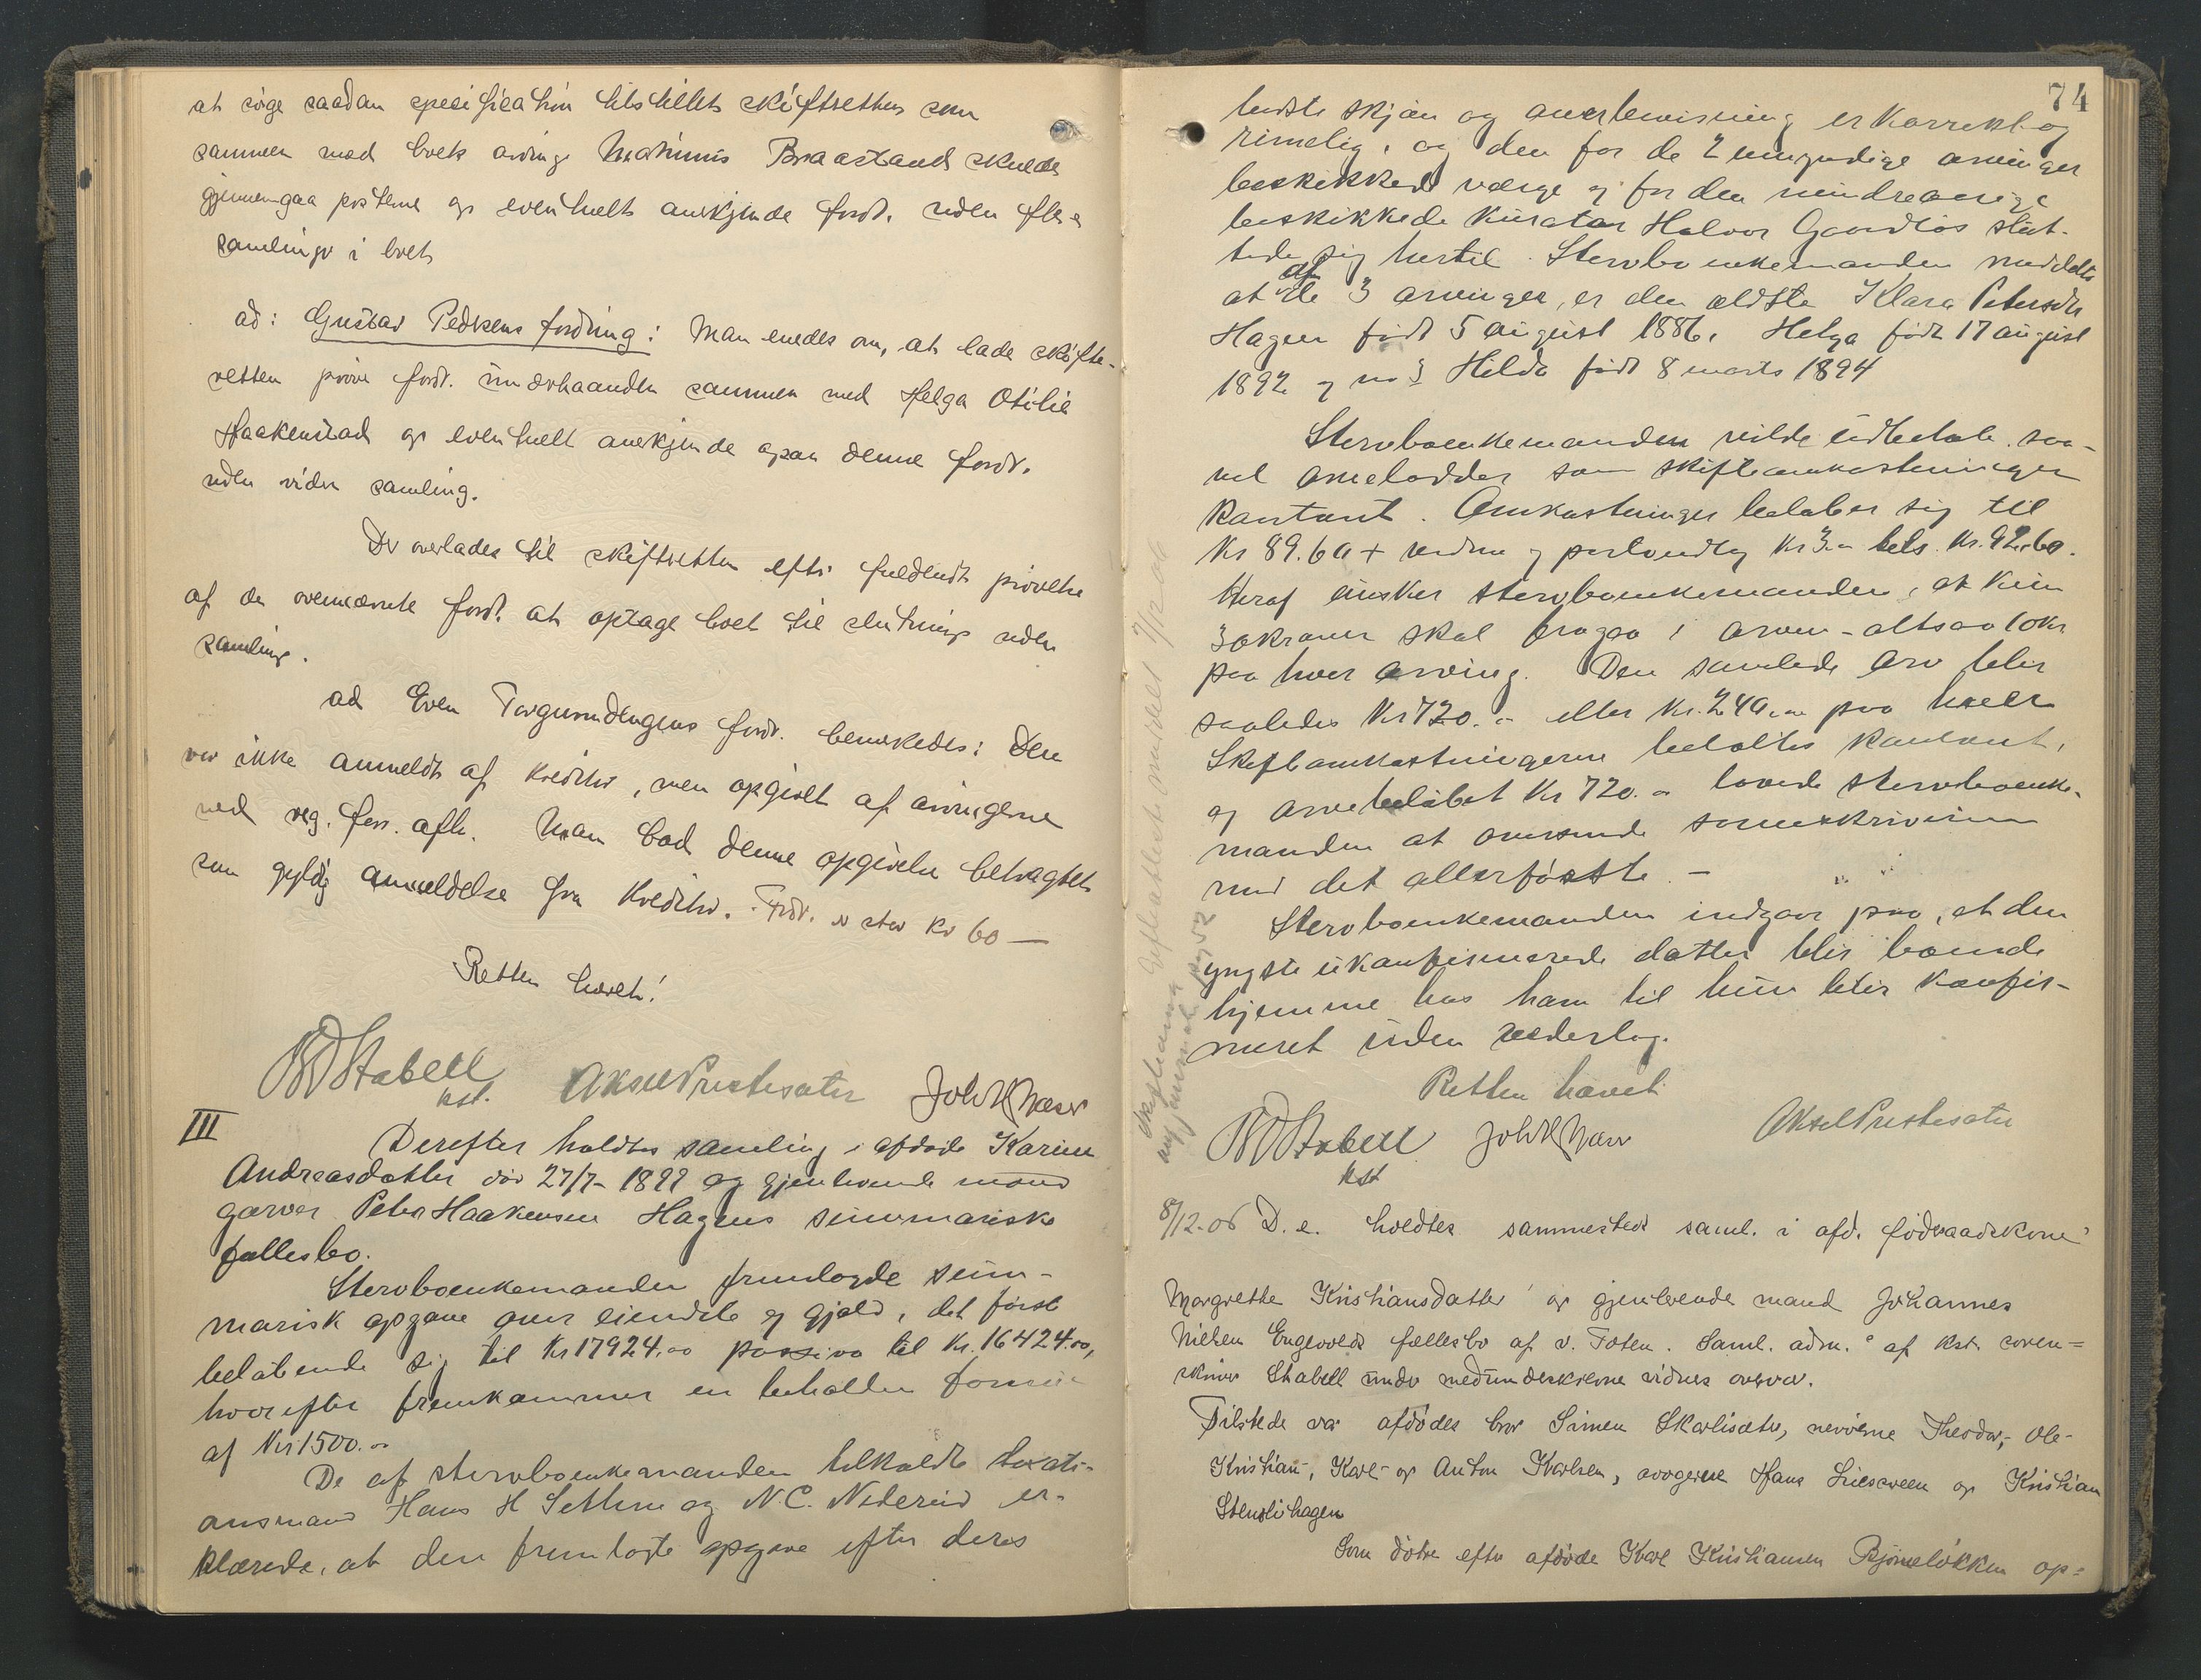 at søge saadan specification tilstillet skifteretten som
sammen med boets arving Mathinus Braastad skulde
gjennemgaa posterne og eventuelt anerkjende fordr. uden flere
samlinger i boet
ad: Gustav Pedersens fordring: Man enedes om, at lade skifte-
retten prøve fordr. underhaanden sammen med Helga Otilie
Haakenstad og eventuelt anerkjende ogsaa denne fordr.
uden videre samling.
Det overlades til skifteretten efter fuldendt prøvelse
af de ovennævnte fordr. at optage boet til slutning uden
samling.
ad Even Torgunrudengens fordr. bemerkedes: Den
var ikke anmeldt af kreditor, men opgivet af arvingerne
ved reg. forr. afh. Man bad denne opgivelse betragtet
som gyldig anmeldelse fra kreditor. Fordr. er stor kr 60 —
Retten hævet!
Stabell
kst. Aksel Prestesæter Joh K Næss
III
Derefter holdtes samling i afdøde Karine
Andreasdatter død 27/7- 1899 og gjenlevende mand
garver Peter Haakensen Hagens summariske
fællesbo.
Stervboenkemanden fremlagde sum-
marisk opgave over eiendele og gjæld, det første
beløbende sig til Kr 17924.00 passiva til Kr. 16424.00,
hvorefter fremkommer en beholden formue
af Kr 1500.00
De af stervboenkemanden tilkaldte taxati-
onsmænd Hans H Sethne og N. C. Nederud er-
klærede, at den fremlagte opgave efter deres
74
bedste skjøn og overbevisning er korrekt og
rimelig, og den for de 2 umyndige arvinger
beskikkede værge og for den mindreaarige
beskikkede kurator Halvor Gaardløs slut-
tede sig hertil. Stervboenkemanden meddelte
at af de 3 arvinger, er den ældste Klara Petersdtr
Hagen født 5 august 1886, Helga født 17 august
1892 og no 3 Hilda født 8 marts 1894
Stervboenkemanden vilde udbetale saa-
vel arvelodder som skifteomkostninger
kontant. Omkostninger beløber sig til
Kr 89.60 + verdne og postvudlæg Kr 3.00 tils. Kr. 92.60.
Heraf ønsker stervboenkemanden, at kun
30 kroner skal fragaa i arven - altsaa 10 kr
paa hver arving. Den samlede arv blir
saaledes Kr 720.00 eller Kr. 240.00 paa hver
Skifteomkostningerne betaltes kontant,
og arvebeløbet Kr 720.00 lovede stervboenke-
manden at oversende sorenskriveren
med det allerførste. -
Stervboenkemanden indgaar paa, at den
yngste ukonfirmerede datter blir boende
hjemme hos ham til hun blir konfir-
meret uden vederlag.
Retten hævet
Stabell Joh K Næss Aksel Prestesæter
kst
8/12-06 D. e. holdtes sammesteds saml. i afd. føderaadskone
Margrethe Kristiansdatter og gjenlevende mand Johannes
Nielsen Engevolds fællesbo af v. Toten. Saml. adm. af kst. soren-
skriver Stabell under medunderskrevne vidners overvær.
Tilstede var afdødes bror Simen Skarlisæter, nevøerne Theodor, Ole
Kristian, Karl og Anton Karlsen, svogerne Hans Liesveen og Kristian
Stenslihagen
Som døtre efter afdøde Karl Kristiansen Bjørneløkken op-